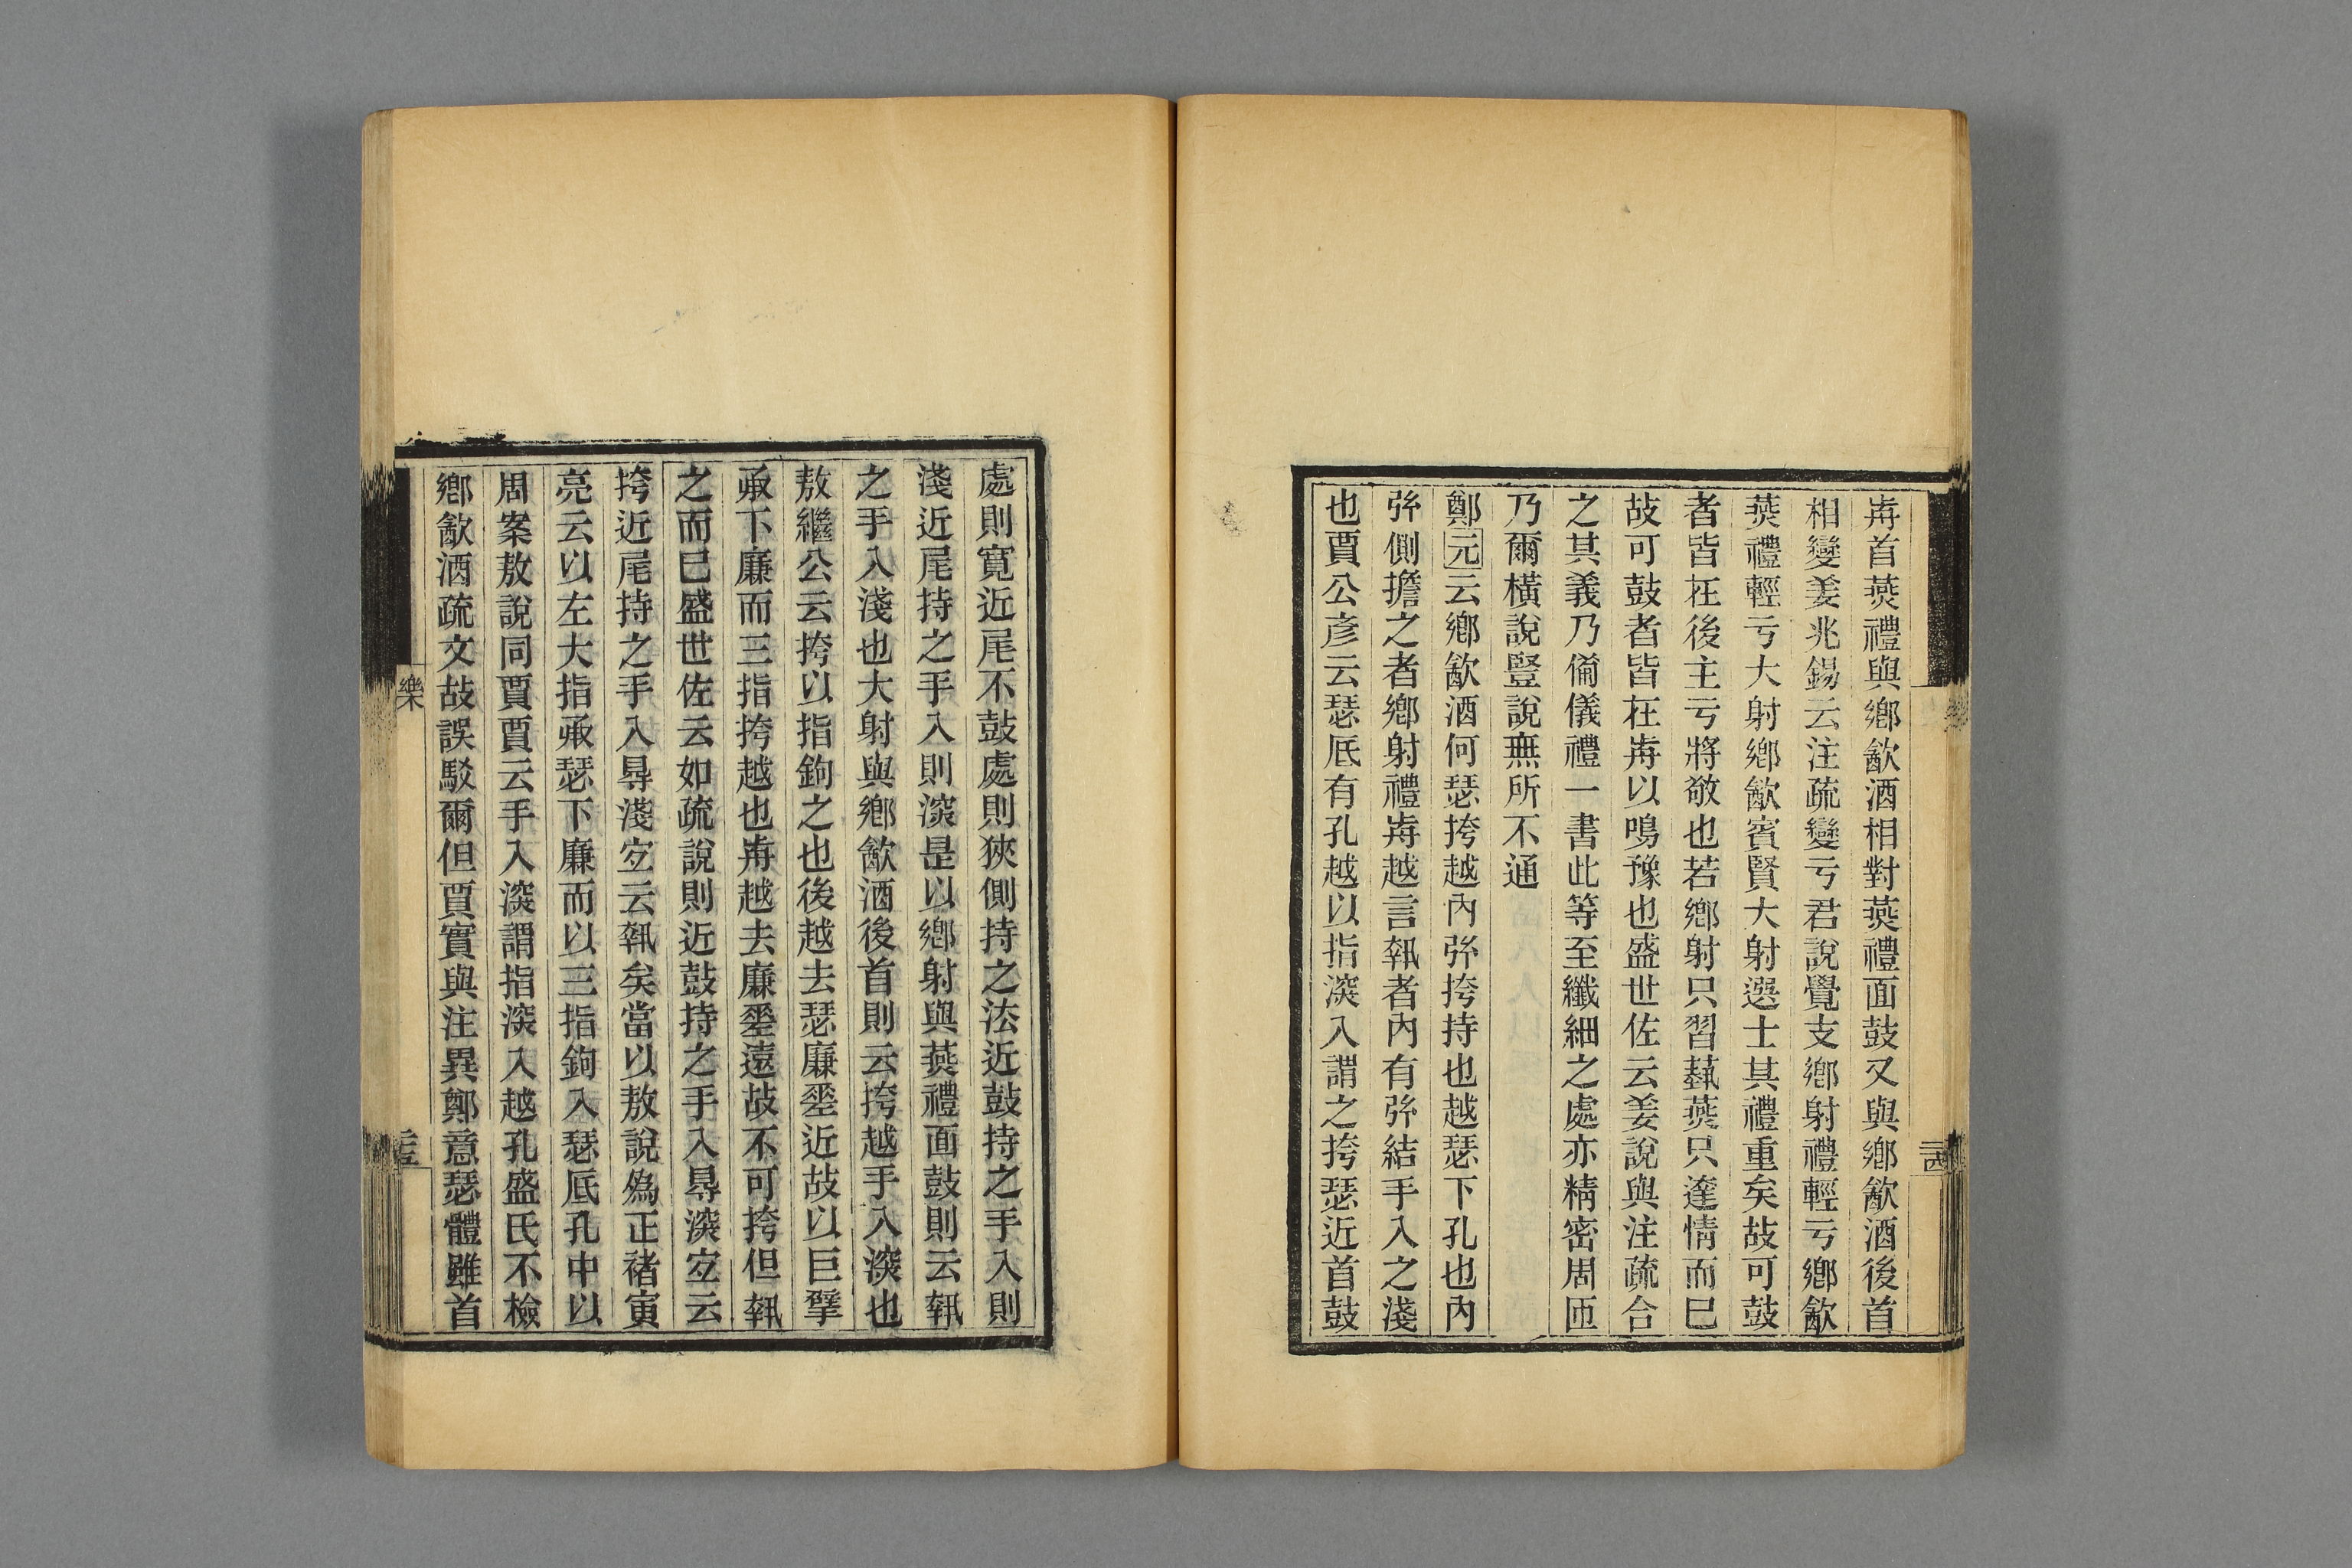 歬首燕禮與鄕㱃酒相對燕禮面鼓又與鄕㱃酒後首
相變姜兆錫云注疏變亏君說覺支鄕射禮輕亏鄕㱃
燕禮輕亏大射鄕㱃賓賢大射選士其禮重矣故可鼓
者皆在後主亏將敬也若鄕射只習埶燕只達情而巳
故可鼓者皆在歬以鳴豫也盛世佐云姜說與注疏合
之其義乃僃儀禮一書此等至纖細之處亦精密周匝
乃爾橫說豎說無所不通
鄭元云鄕㱃酒何瑟挎越內弦挎持也越瑟下孔也內
弦側擔之者鄕射禮歬越言執者內有弦結手入之淺
也賈公彥云瑟底有孔越以指深入謂之挎瑟近首鼓
處則寬近尾不鼓處則狹側持之法近鼓持之手入則
淺近尾持之手入則深是以鄕射與燕禮面鼓則云執
之手入淺也大射與鄕㱃酒後首則云挎越手入深也
敖繼公云挎以指鉤之也後越去瑟廉差近故以巨擘
承下廉而三指挎越也歬越去廉差遠故不可挎但執
之而巳盛世佐云如疏說則近鼓持之手入㝵深宐云
挎近尾持之手入㝵淺宐云執矣當以敖說為正褚寅
亮云以左大指承瑟下廉而以三指鉤入瑟底孔中以
周案敖說同賈賈云手入深謂指深入越孔盛氏不檢
鄕㱃酒疏文故誤駁爾但賈實與注異鄭意瑟體雖首
樂